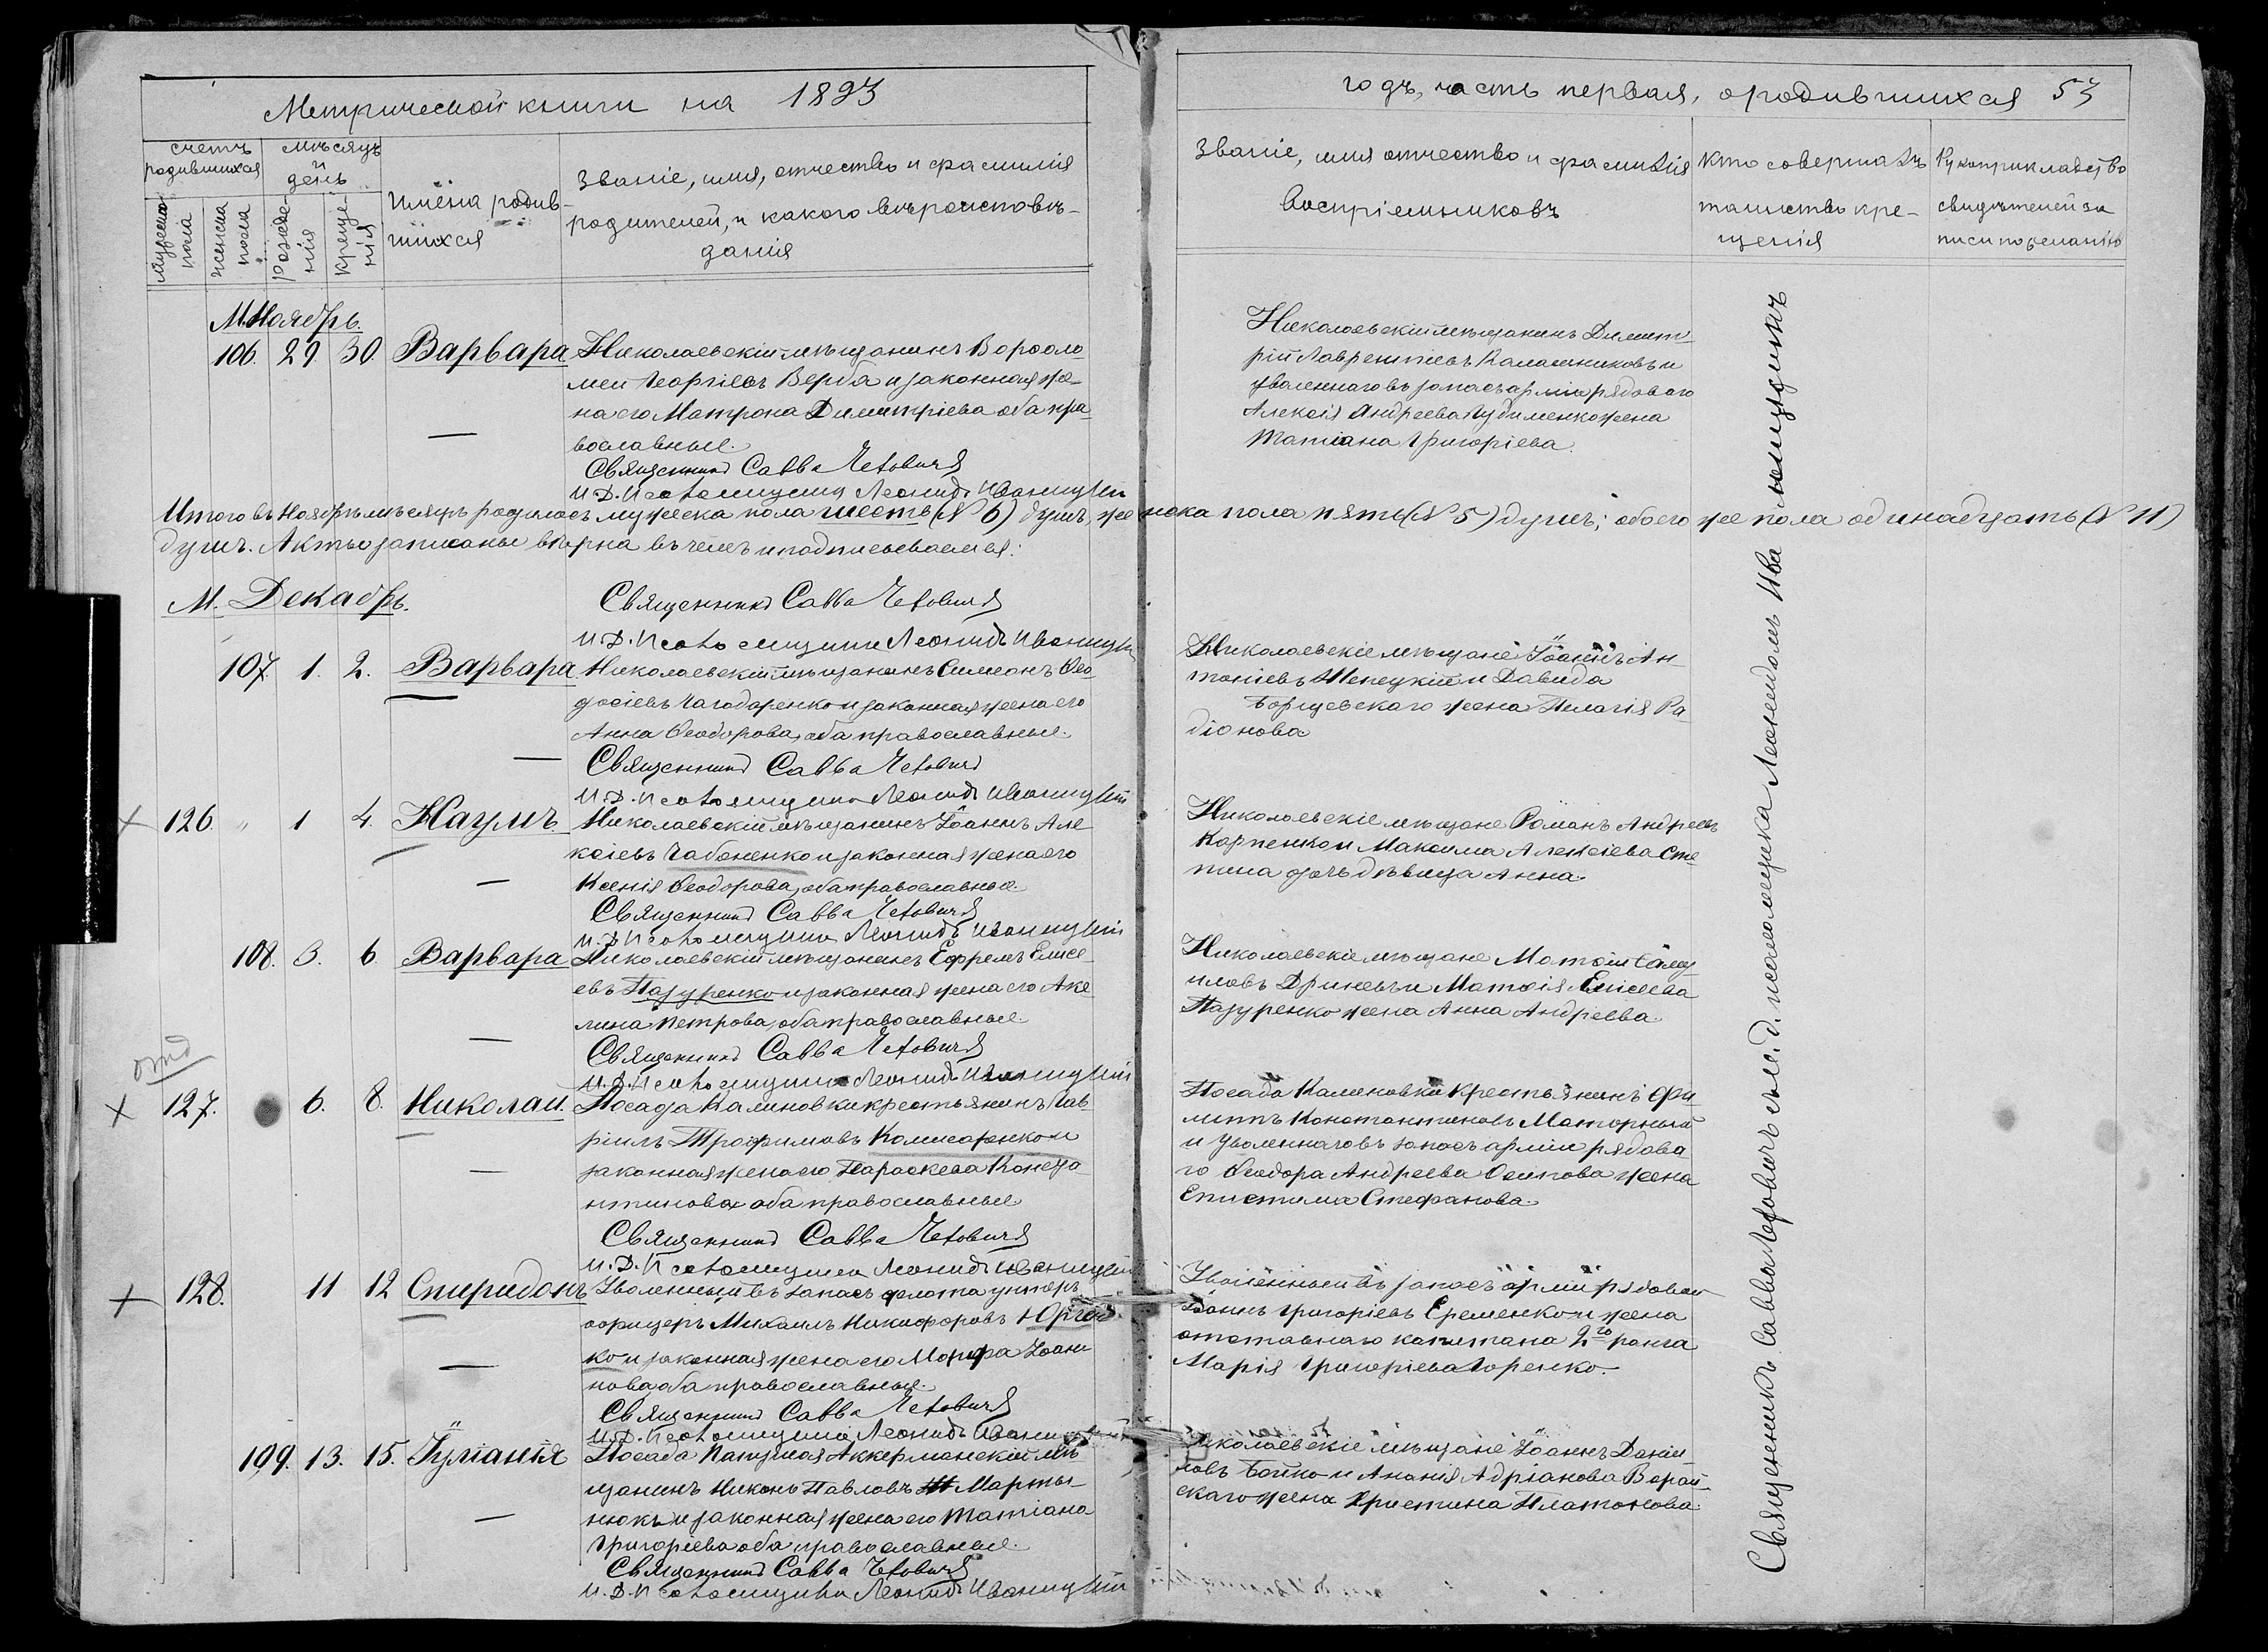 Метрической книги на 1893
годъ, часть первая, о родившихся 53
счетъ родившихся
мѣсяцъ и день
мужеска пола
женска пола
рожденія
крещенія
Имена родившихся
Званіе, имя, отчество и фамилія
родителей, и какого вѣроисповѣ-
данія
Званіе, имя отчество и фамилія
воспріемниковъ
Кто совершалъ
таинство кре-
щенія
Рукоприкладство
свидѣтелей за
писи по желанію
М. Ноябрь.
106. 29 30. Варвара
Николаевскій мѣщанинъ Варѳоло
мей Георгіевъ Верба и законная же-
на его Матрона Димитріева оба пра
вославные.
Священникъ Савва
И.Д. Псаломщика Леонидъ
Николаевскій мѣщанинъ Димит
рій Лаврентіевъ Калашниковъ и
уволеннаго въ запасъ арміи рядоваго
Алексія Андреева жена
Татіана Григоріева.
Итого въ Ноябрѣ мѣсяцѣ родилось мужеска пола шесть (№ 6) душъ, женска пола пять (№ 5) душъ; обоего же пола одинадцать (№ 11)
душъ. Акты записаны вѣрна въ чемъ и подписываемся:
Священникъ Савва
И.Д. Псаломщика Леонидъ
М. Декабрь.
107. 1. 2. Варвара
Николаевскій мѣщанинъ Симеонъ Ѳео
досіевъ Чагодаренко и законная жена его
Анна Ѳеодорова, оба православные.
Священникъ Савва
И.Д. Псаломщика Леонидъ
Николаевскіе мѣщане Іоаннъ Ан
тоніевъ Шепецкій и Давида
Борщевскаго жена Пелагія Ра
діонова
126. " 1 4. Наумъ.
Николаевскій мѣщанинъ Іоаннъ Але
ксіевъ Чабаненко и законная жена его
Ксенія Ѳеодорова, оба православные.
Священникъ Савва
И.Д. Псаломщика Леонидъ
Николаевскіе мѣщане Романъ Андреевъ
Карпенко и Максима Алексіева Сте
пина дочь дѣвица Анна.
108. 3. 6. Варвара
Николаевскій мѣщанинъ Ефремъ Елисе
евъ Пазуренко и законная жена его Аке
лина Петрова, оба православные.
Священникъ Савва
И.Д. Псаломщика Леонидъ
Николаевскіе мѣщане Матѳій
иловъ и Матѳія Елисеева
Пазуренко жена Анна Андреева.
127. 6. 8. Николай.
Посада Калиновки крестьянинъ Гав
ріилъ Трофимовъ Комисаренко и
законная жена его Параскева Конста
нтинова оба православные.
Священникъ Савва
И.Д. Псаломщика Леонидъ
Посада Калиновки крестьянинъ Фи
липъ Константиновъ Маторный
и уволеннаго въ запасъ арміи рядова
го Ѳеодора Андреева Осипова жена
Епистима Стефанова.
128. 11 12 Спиридонъ
Уволенный въ запасъ флота унтеръ
офицеръ Михаилъ Никифоровъ Юрчен
ко и законная жена его Марфа Іоан
нова оба православные.
Священникъ Савва
И.Д. Псаломщика Леонидъ
Уволенный въ запасъ арміи рядовой
Іоаннъ Григоріевъ Еременко и жена
отставнаго капитана 2го ранга
Марія Григоріева Горенко.
109. 13. 15. Іуліанія
Посада Аккерманскій мѣ
щанинъ Никонъ Павловъ Марты-
нюкъ и законная жена его Татіана
Григоріева оба православные.
Священникъ Савва
И.Д. Псаломщика Леонидъ
Николаевскіе мѣщане Іоаннъ Даніи
ловъ Бойко и Ананія Адріанова
скаго жена Христина Платонова.
Священникъ Савва съ и. д. псаломщика Леонидомъ